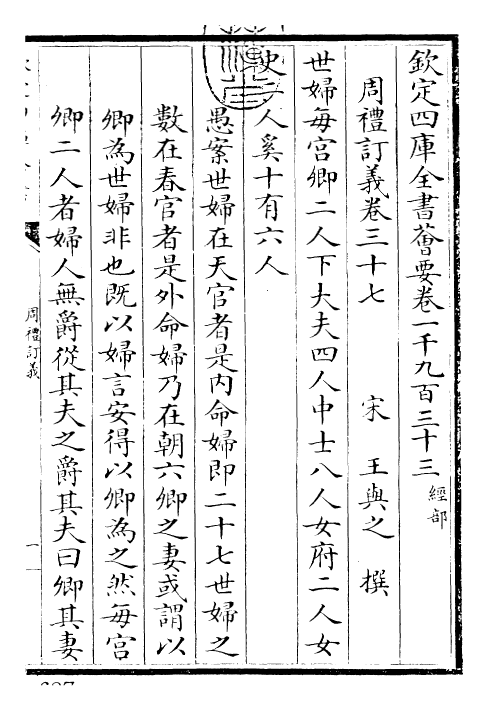 欽定四庫全書薈要卷一千九百三十三 經部
周禮訂義卷三十七 宋 王與之 撰
世婦每宫卿二人下大夫四人中士八人女府二人女
史二人奚十有六人
愚案世婦在天官者是内命婦即二十七世婦之
數在春官者是外命婦乃在朝六卿之妻或謂以
卿為世婦非也既以婦言安得以卿為之然每宫
卿二人者婦人無爵從其夫之爵其夫曰卿其妻
周禮訂義
一